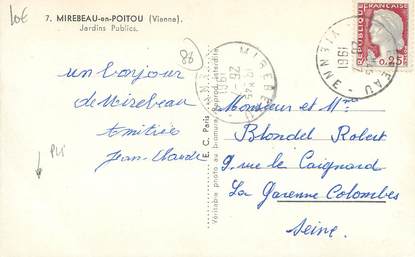 10€
7. MIREBEAU-en-POITOU (Vienne).
Jardins Publics.
86
un bonjour
de Mirebeau
Amitiés
Jean-Claude
E. C. Paris
Véritable photo au bromure
MIREBEAU
VIENNE
1961
REPUBLIQUE FRANÇAISE
0,25
Monsieur et Mme
Blondel Robert
9 rue le Caignard
La Garenne Colombes
Seine.